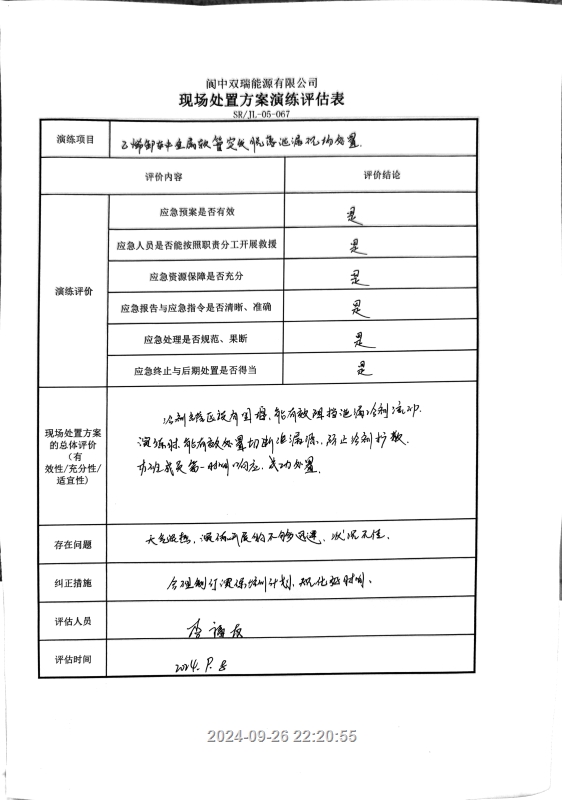 阆中双瑞能源有限公司
现场处置方案演练评估表
SR/JL-05-067
演练项目 乙烯卸车中金属软管突然脱落泄漏现场处置.
评价内容 评价结论
演练评价
应急预案是否有效 是
应急人员是否能按照职责分工开展救援 是
应急资源保障是否充分 是
应急报告与应急指令是否清晰、准确 是
应急处理是否规范、果断 是
应急终止与后期处置是否得当 是
现场处置方案
的总体评价
（有
效性/充分性/
适宜性）
冷剂罐区设有围堰,能有效阻挡泄漏冷剂流动.
演练时,能有效处置切断泄漏源,防止冷剂扩散.
当班成员第一时间响应,成功处置.
存在问题 天气炎热,演练开展的不够迅速、状况不佳.
纠正措施 合理制订演练培训计划,优化好时间.
评估人员 李
评估时间 2024.9.8
2024-09-26 22:20:55